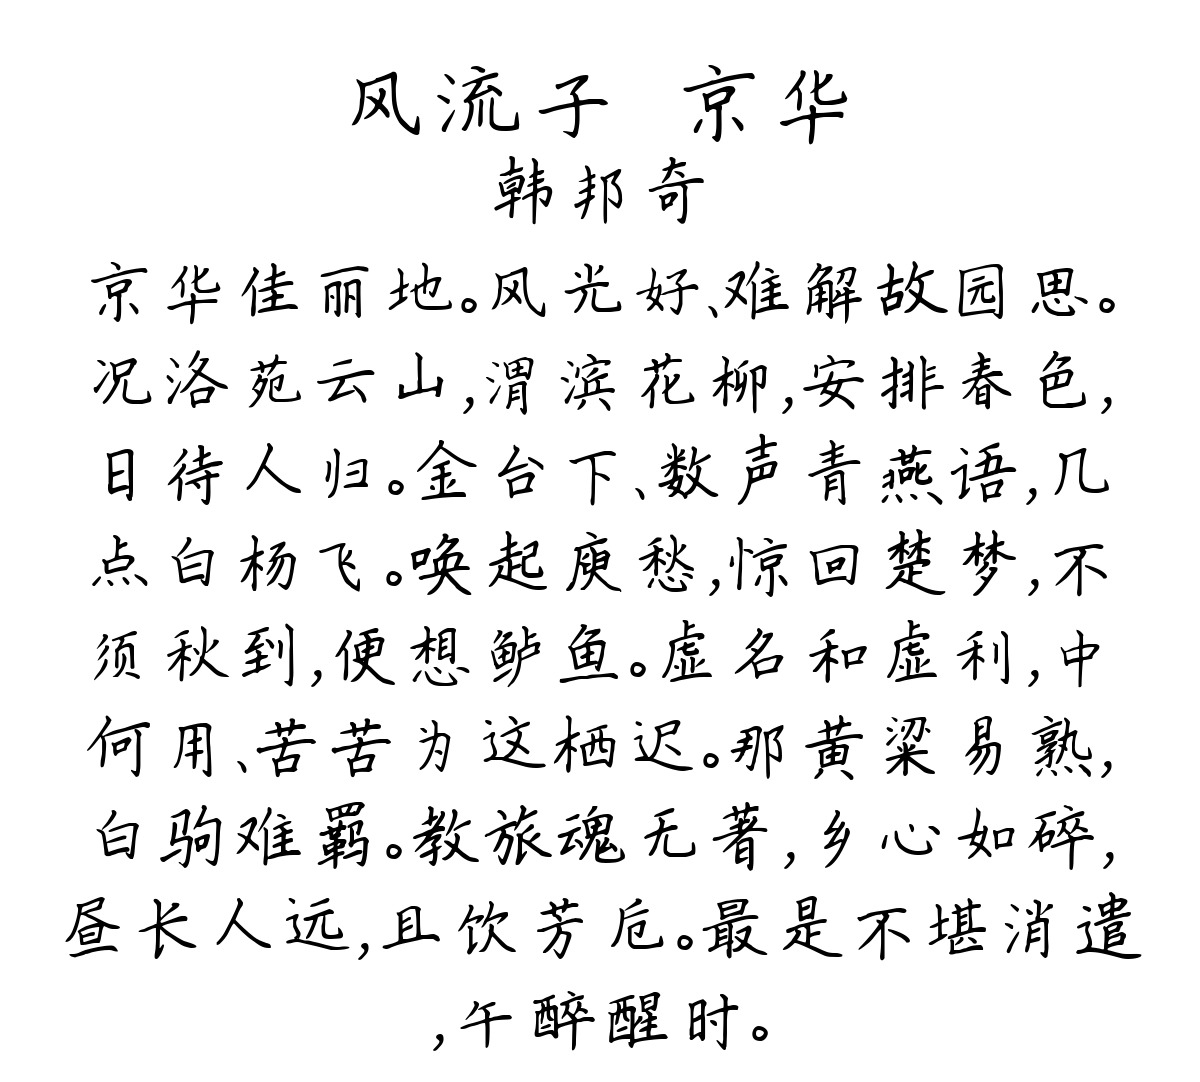 风流子 京华
韩邦奇
京华佳丽地。风光好、难解故园思。
况洛苑云山,渭滨花柳,安排春色,
日待人归。金台下、数声青燕语,几
点白杨飞。唤起庾愁,惊回楚梦,不
须秋到,便想鲈鱼。虚名和虚利,中
何用、苦苦为这栖迟。那黄粱易熟,
白驹难羁。教旅魂无著,乡心如碎,
昼长人远,且饮芳卮。最是不堪消遣
,午醉醒时。